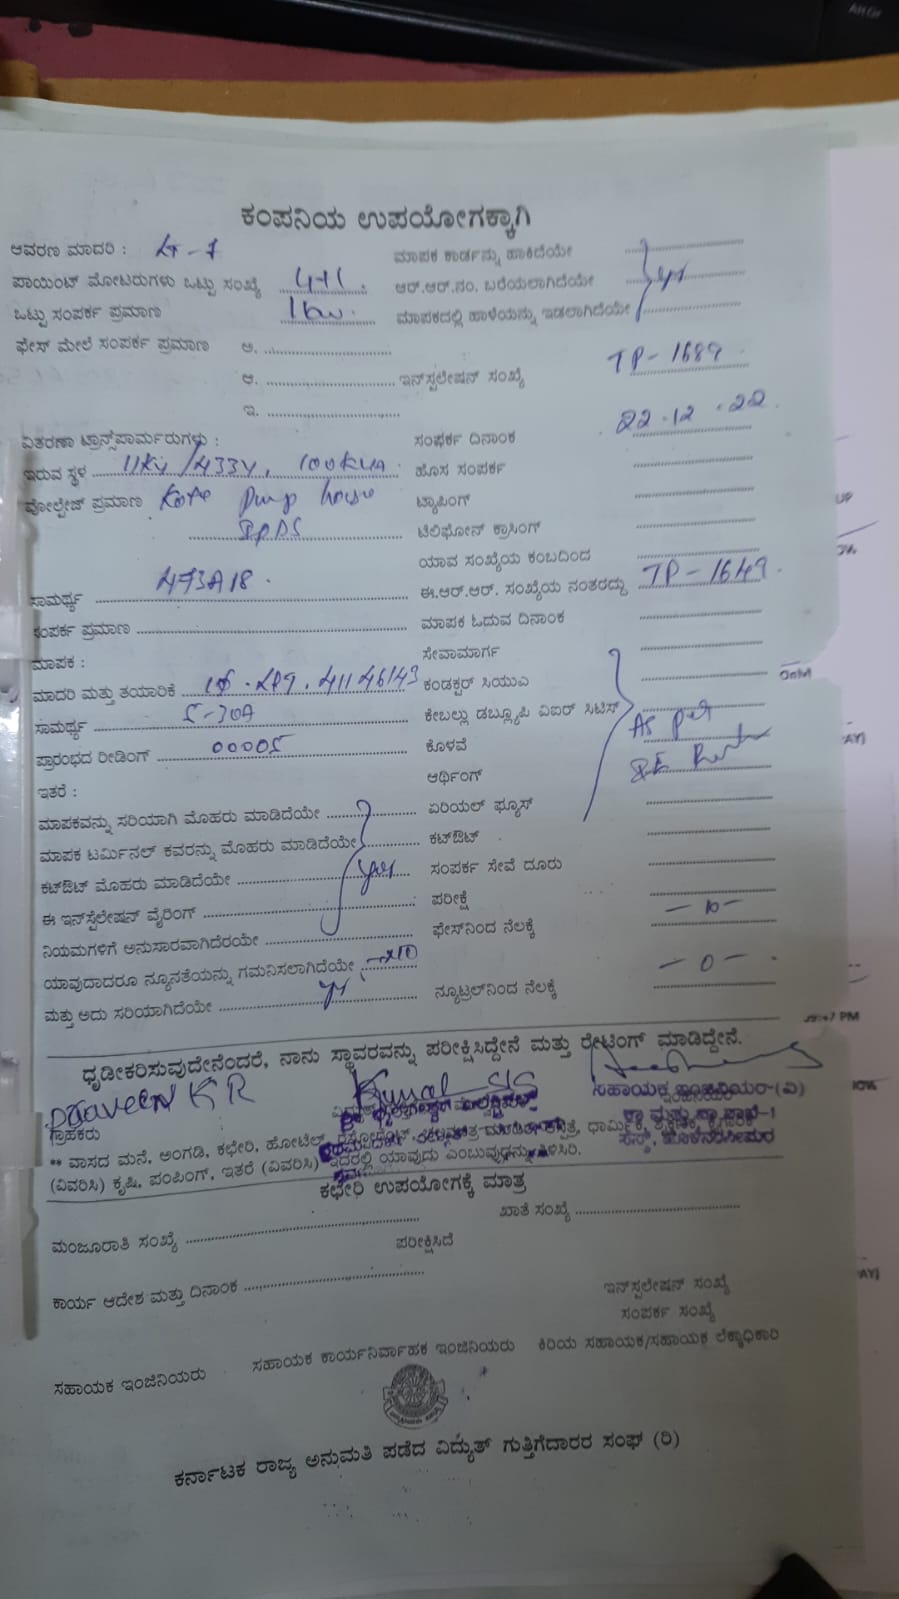 ಕಂಪನಿಯ ಉಪಯೋಗಕ್ಕಾಗಿ
ಆವರಣ ಮಾದರಿ : LT-7 ಮಾಪಕ ಕಾರ್ಡನ್ನು ಹಾಕಿದೆಯೇ
ಪಾಯಿಂಟ್ ಮೋಟರುಗಳು ಒಟ್ಟು ಸಂಖ್ಯೆ 4+1 ಆರ್.ಆರ್.ನಂ. ಬರೆಯಲಾಗಿದೆಯೇ yes
ಒಟ್ಟು ಸಂಪರ್ಕ ಪ್ರಮಾಣ 1kw. ಮಾಪಕದಲ್ಲಿ ಹಾಳೆಯನ್ನು ಇಡಲಾಗಿದೆಯೇ
ಫೇಸ್ ಮೇಲೆ ಸಂಪರ್ಕ ಪ್ರಮಾಣ ಅ.
ಆ. ಇನ್‌ಸ್ಟಲೇಷನ್ ಸಂಖ್ಯೆ TP-1689
ಇ.
ವಿತರಣಾ ಟ್ರಾನ್ಸ್‌ಪಾರ್ಮರುಗಳು : ಸಂಪರ್ಕ ದಿನಾಂಕ 22.12.22
ಇರುವ ಸ್ಥಳ 11KV/433V, 100KVA ಹೊಸ ಸಂಪರ್ಕ
ವೋಲ್ಟೇಜ್ ಪ್ರಮಾಣ Kote Pump house ಟ್ಯಾಪಿಂಗ್
ಟೆಲಿಫೋನ್ ಕ್ರಾಸಿಂಗ್
ಯಾವ ಸಂಖ್ಯೆಯ ಕಂಬದಿಂದ
ಸಾಮರ್ಥ್ಯ ಈ.ಆರ್.ಆರ್. ಸಂಖ್ಯೆಯ ನಂತರದ್ದು TP-1649
ಸಂಪರ್ಕ ಪ್ರಮಾಣ ಮಾಪಕ ಓದುವ ದಿನಾಂಕ
ಮಾಪಕ : ಸೇವಾಮಾರ್ಗ
ಮಾದರಿ ಮತ್ತು ತಯಾರಿಕೆ ಕಂಡಕ್ಟರ್ ಸಿಯುವಿ
ಸಾಮರ್ಥ್ಯ 5-30A ಕೇಬಲ್ಲು ಡಬ್ಲ್ಯೂಪಿ ವಿಐಆರ್ ಸಿಟಿಸ್
ಪ್ರಾರಂಭದ ರೀಡಿಂಗ್ 00005 ಕೊಳವೆ As per
ಇತರೆ : ಆರ್ಥಿಂಗ್
ಮಾಪಕವನ್ನು ಸರಿಯಾಗಿ ಮೊಹರು ಮಾಡಿದೆಯೇ ಏರಿಯಲ್ ಫ್ಯೂಸ್
ಮಾಪಕ ಟರ್ಮಿನಲ್ ಕವರನ್ನು ಮೊಹರು ಮಾಡಿದೆಯೇ ಕಟ್‌ಔಟ್
ಕಟ್‌ಔಟ್ ಮೊಹರು ಮಾಡಿದೆಯೇ yes ಸಂಪರ್ಕ ಸೇವೆ ದೂರು
ಈ ಇನ್‌ಸ್ಟೆಲೇಷನ್ ವೈರಿಂಗ್ ಪರೀಕ್ಷೆ
ನಿಯಮಗಳಿಗೆ ಅನುಸಾರವಾಗಿದೆರಯೇ ಫೇಸ್‌ನಿಂದ ನೆಲಕ್ಕೆ -10-
ಯಾವುದಾದರೂ ನ್ಯೂನತೆಯನ್ನು ಗಮನಿಸಲಾಗಿದೆಯೇ
ಮತ್ತು ಅದು ಸರಿಯಾಗಿದೆಯೇ ನ್ಯೂಟ್ರಲ್‌ನಿಂದ ನೆಲಕ್ಕೆ -0-
ಧೃಡೀಕರಿಸುವುದೇನೆಂದರೆ, ನಾನು ಸ್ಥಾವರವನ್ನು ಪರೀಕ್ಷಿಸಿದ್ದೇನೆ ಮತ್ತು ರೇಟಿಂಗ್ ಮಾಡಿದ್ದೇನೆ.
Praveen K R
ಸಹಾಯಕ ಇಂಜಿನಿಯರ್-(ವಿ)
ಗ್ರಾಹಕರು
** ವಾಸದ ಮನೆ, ಅಂಗಡಿ, ಕಛೇರಿ, ಹೋಟೆಲ್, ಧಾರ್ಮಿಕ,
(ವಿವರಿಸಿ) ಕೃಷಿ, ಪಂಪಿಂಗ್, ಇತರೆ (ವಿವರಿಸಿ) ಇದರಲ್ಲಿ ಯಾವುದು ಎಂಬುವುದನ್ನು ತಿಳಿಸಿರಿ.
ಕಛೇರಿ ಉಪಯೋಗಕ್ಕೆ ಮಾತ್ರ
ಮಂಜೂರಾತಿ ಸಂಖ್ಯೆ ಖಾತೆ ಸಂಖ್ಯೆ
ಪರೀಕ್ಷಿಸಿದೆ
ಕಾರ್ಯ ಆದೇಶ ಮತ್ತು ದಿನಾಂಕ ಇನ್‌ಸ್ಟಲೇಷನ್ ಸಂಖ್ಯೆ
ಸಂಪರ್ಕ ಸಂಖ್ಯೆ
ಸಹಾಯಕ ಇಂಜಿನಿಯರು ಸಹಾಯಕ ಕಾರ್ಯನಿರ್ವಾಹಕ ಇಂಜಿನಿಯರು ಕಿರಿಯ ಸಹಾಯಕ/ಸಹಾಯಕ ಲೆಕ್ಕಾಧಿಕಾರಿ
ಕರ್ನಾಟಕ ರಾಜ್ಯ ಅನುಮತಿ ಪಡೆದ ವಿದ್ಯುತ್ ಗುತ್ತಿಗೆದಾರರ ಸಂಘ (ರಿ)